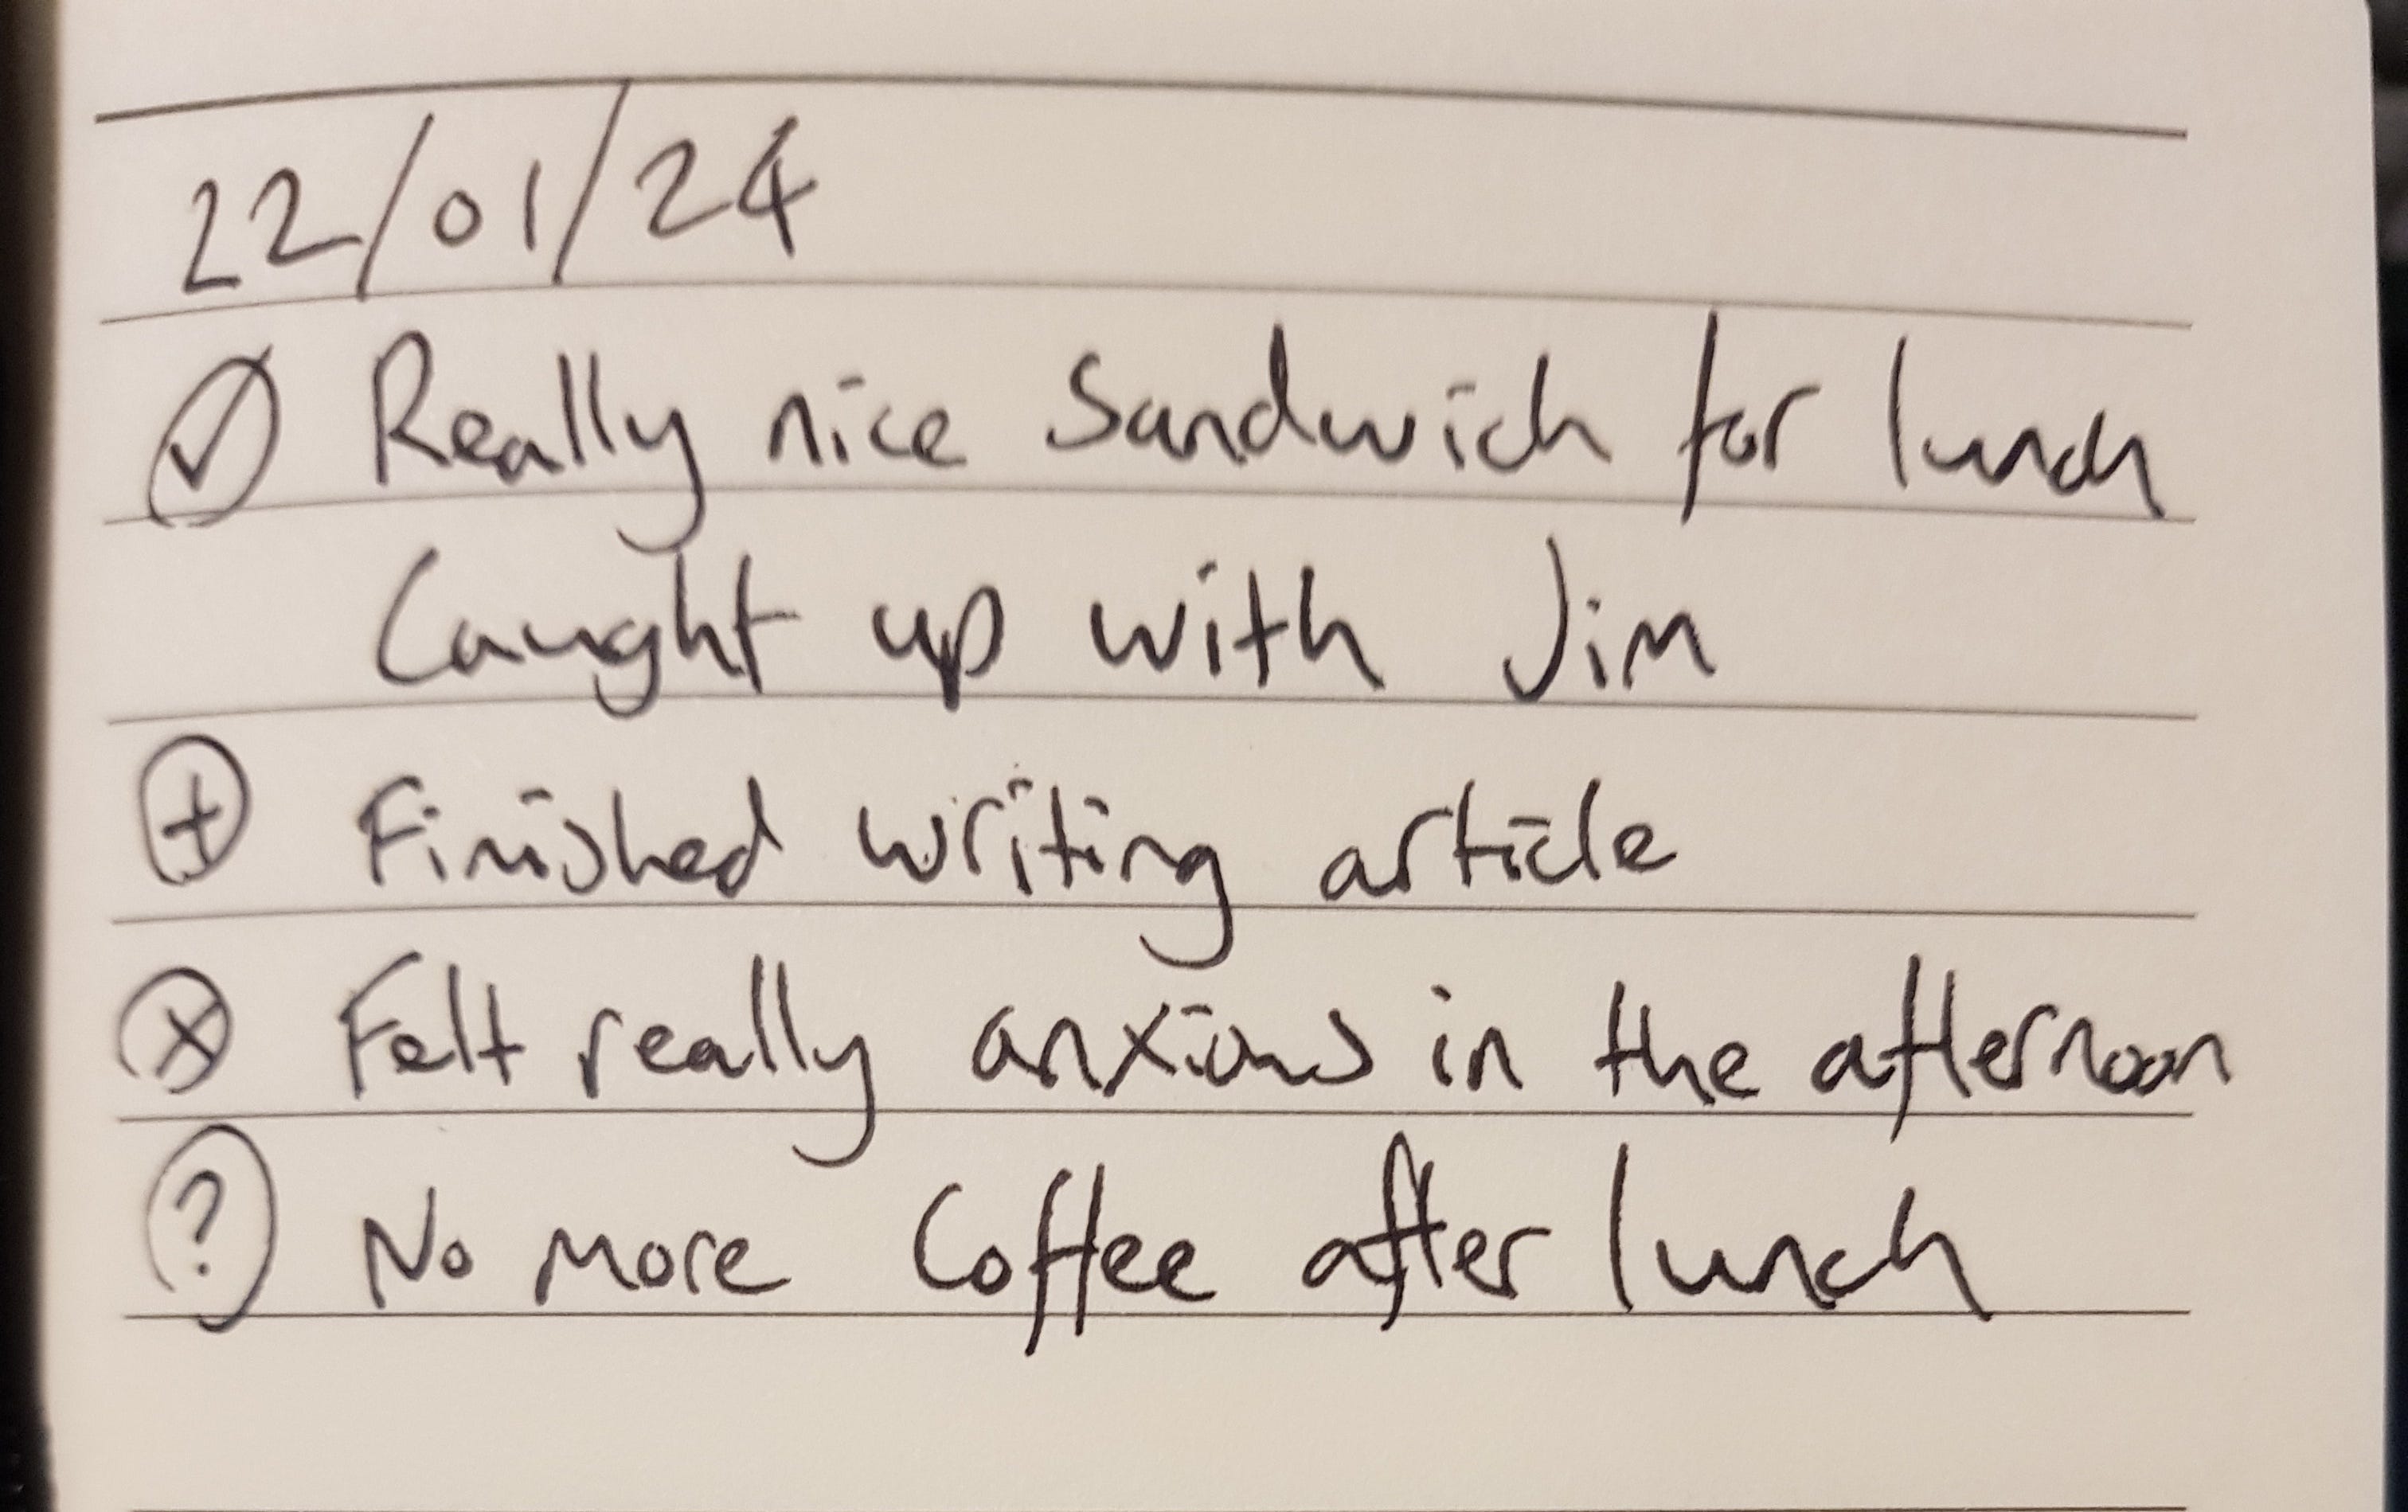 22/01/24
✓ Really nice Sandwich for lunch
Caught up with Jim
+ Finished writing article
x Felt really anxious in the afternoon
? No more Coffee after lunch